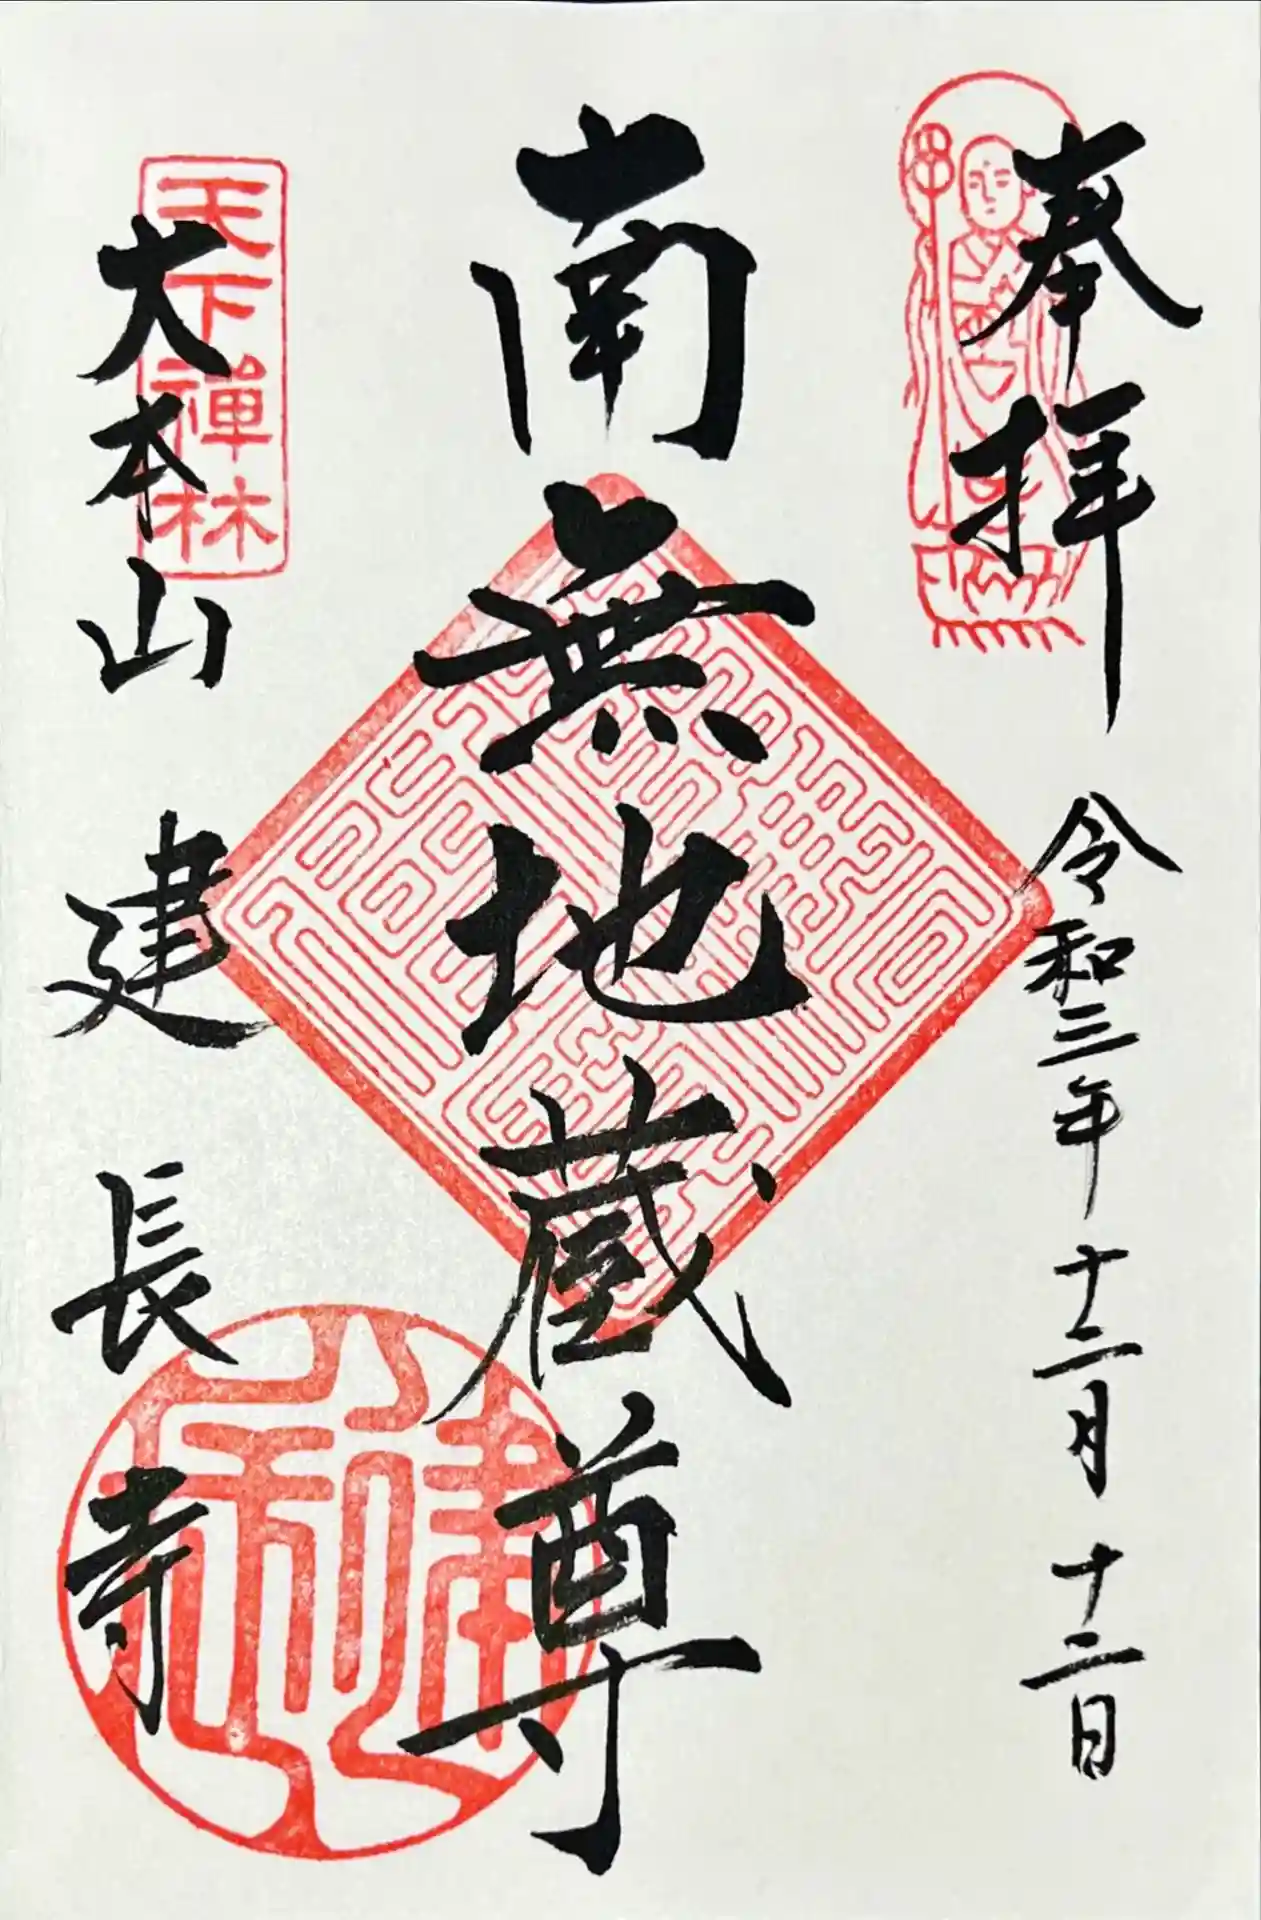 奉拝
令和三年十二月十二日
南無地蔵尊
天下禅林
大本山
建長寺